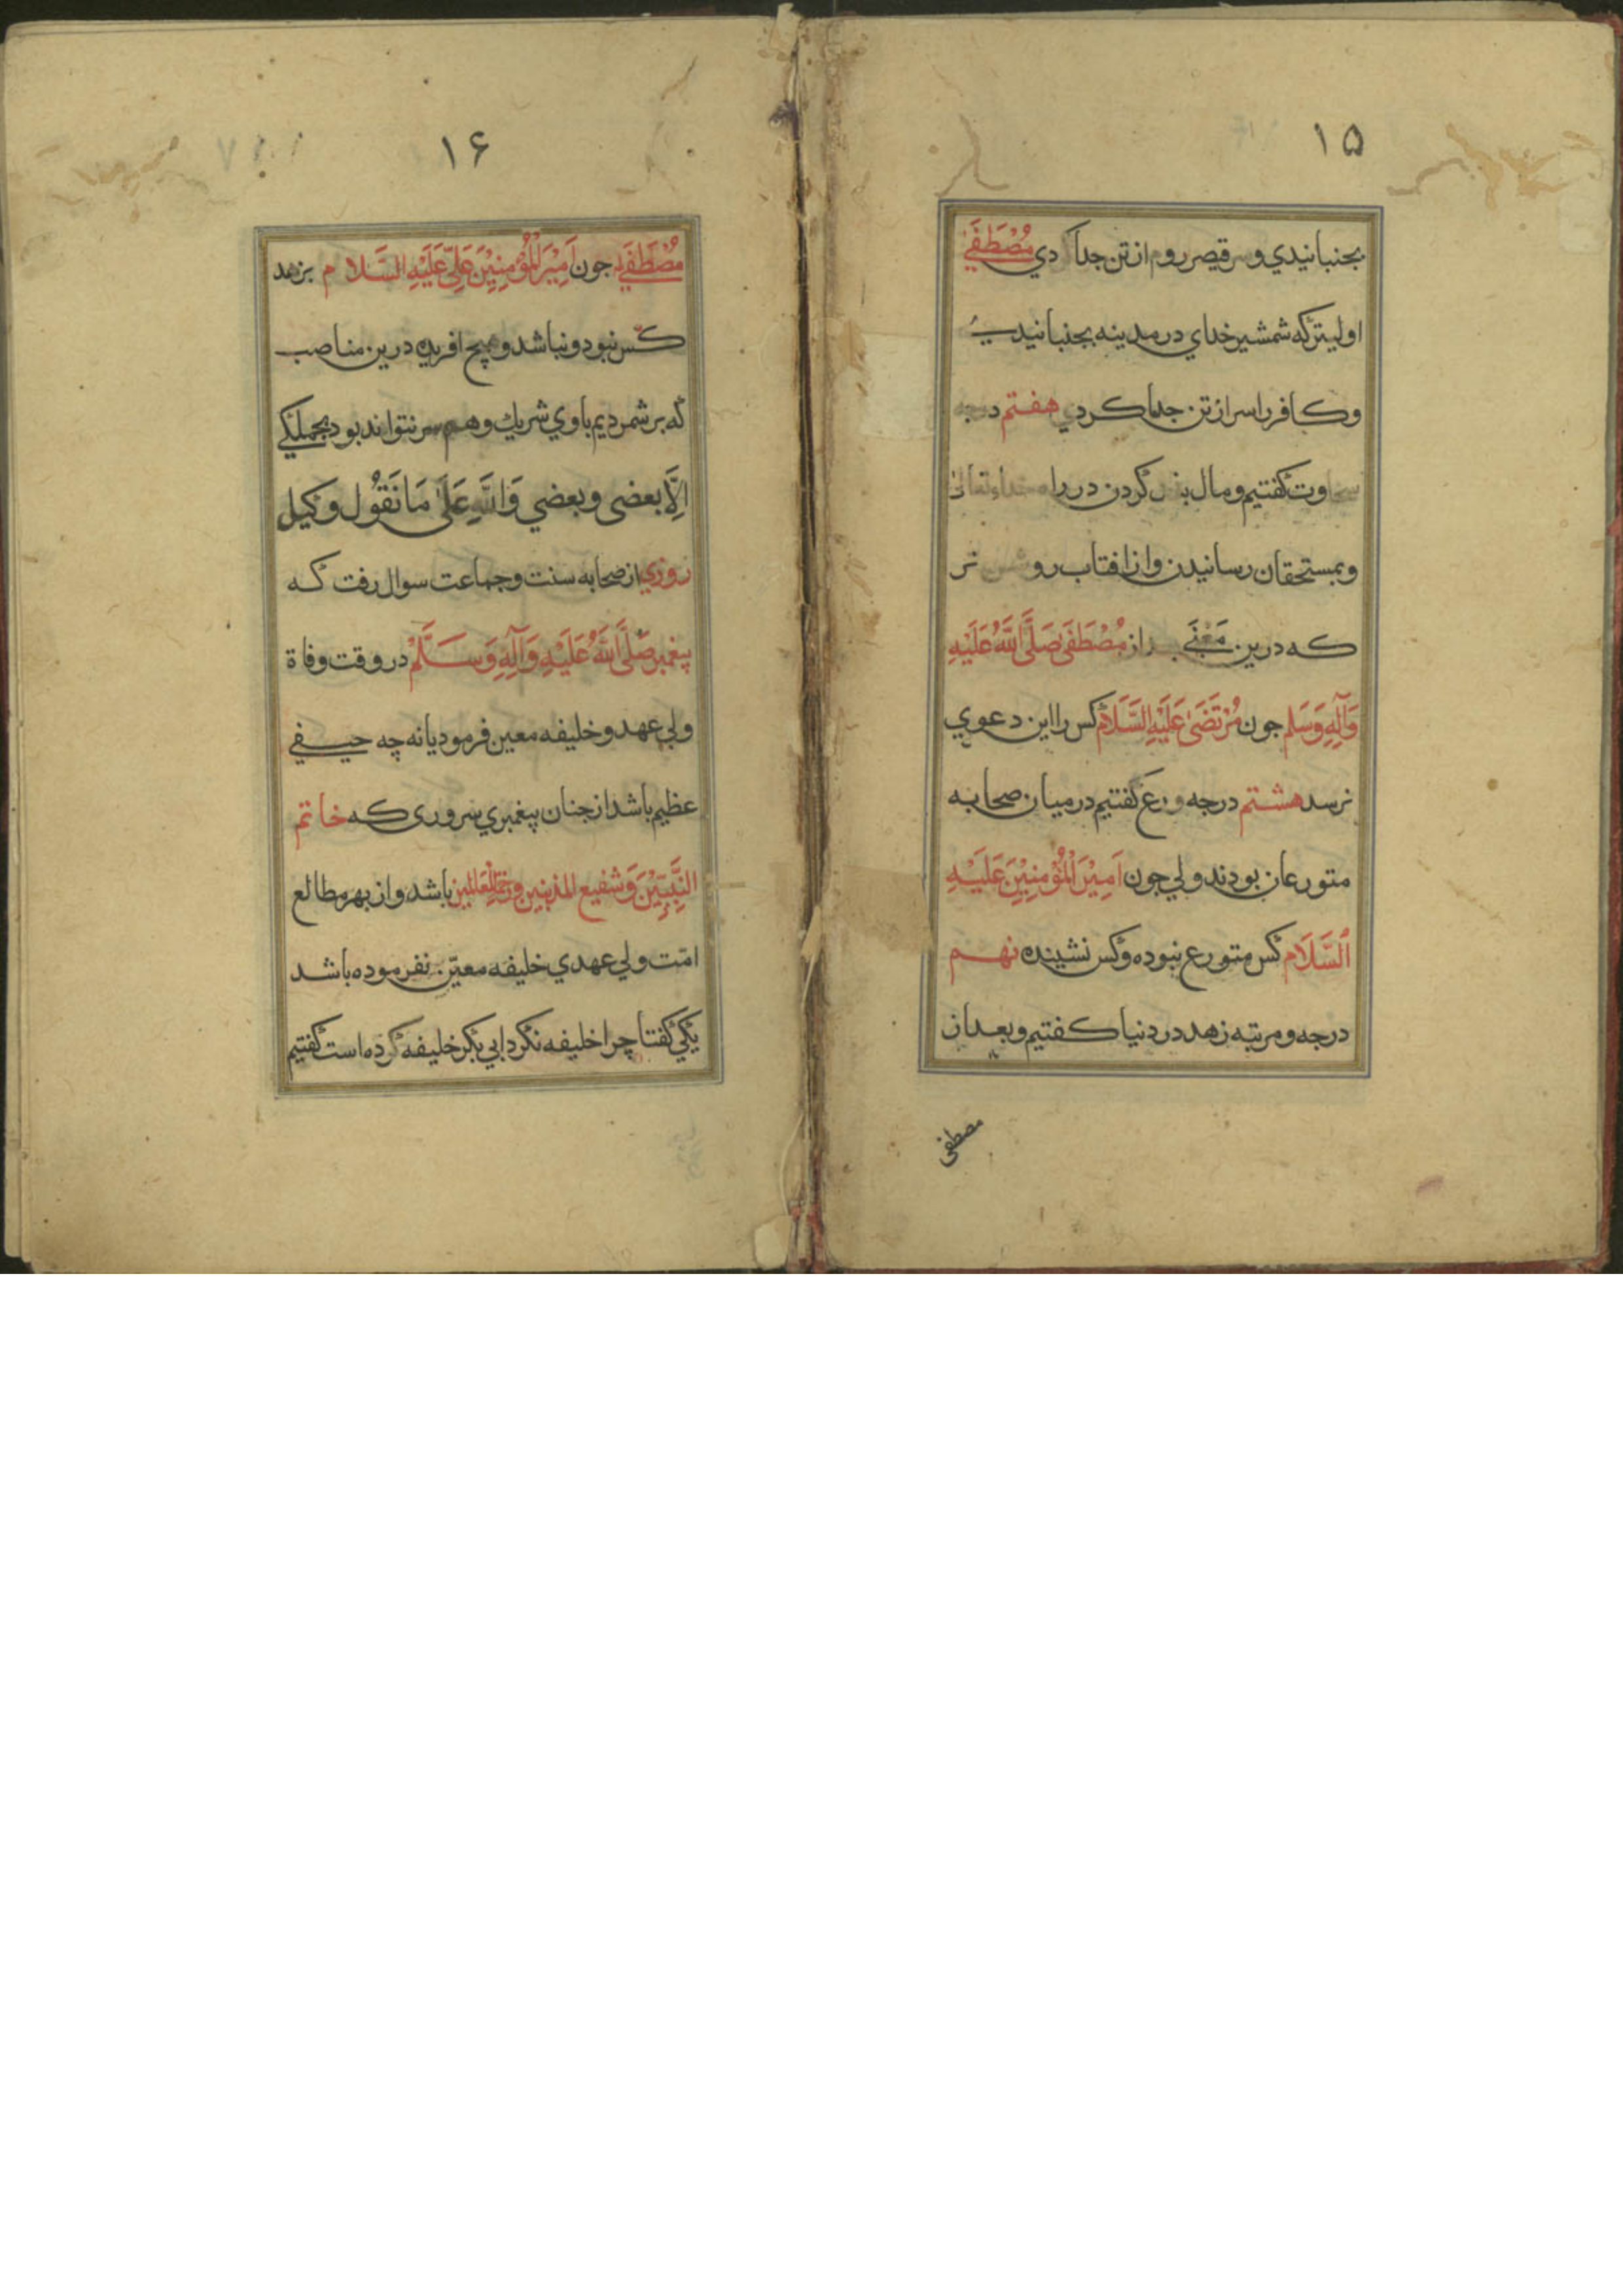 ۱۵
بجنبانیدي و سر قیصر روم از تن جدا کردي مُصْطَفَےٰ
اولیتر که شمشیر خداي در مدینه بجنبانیدي
و کافر را سر از تن جدا کردي هفتم درجه
سخاوت کفتیم و مال بذل کردن در راه خداء تعالی
و بمستحقان رسانیدن و از افتاب روشن تر
که درین مَعْنَے بعد از مُصْطَفَی صَلَّی اللَّهُ عَلَیْهِ
وَآلِهِ وَسَلم جون مُرْتَضَیٰ عَلَیْهِ السَّلَام کس را این دعوي
نرسد هشتم درجه ورع کفتیم در میان صحابه
متورعان بودند ولي جون اَمِیْرَ الْمُؤْمِنِیْنَ عَلَیْهِ
اَلسَّلَام کس متورع نبوده و کس نشینده نهم
درجه و مرتبه زهد در دنیا کفتیم و بعد از
مصطفی
۱۶
مُصْطَفَے جون اَمِیْرَ الْمُؤْمِنِیْنَ عَلِیّ عَلَیْهِ السَّلام بزهد
کس نبود و نباشد و هیچ افریده درین مناصب
که بر شمردیم باوي شریك و همسر نتواند بود بجملکے
اِلَّا بعضی و بعضي وَاللَّهِ عَلَیٰ مَا نَقُول وکیل
روزي از صحابه سنت و جماعت سوال رفت که
پیغمبر صَلَّی اللَّهُ عَلَیْهِ وَآلِهِ وَسَلَّمْ در وقت وفاة
ولي عهد و خلیفه معین فرمود یا نه چه حیفے
عظیم باشد از جنان پیغمبري سروری که خاتم
النَّبِیِّیْنَ وَشفیع المذنبین ورحمة للعالمین باشد و از بهر مطالع
امّت ولي عهدي خلیفه معیّن نفرموده باشد
یکي کفتا چرا خلیفه نکرد ابي بکر خلیفه کرده است کفتیم